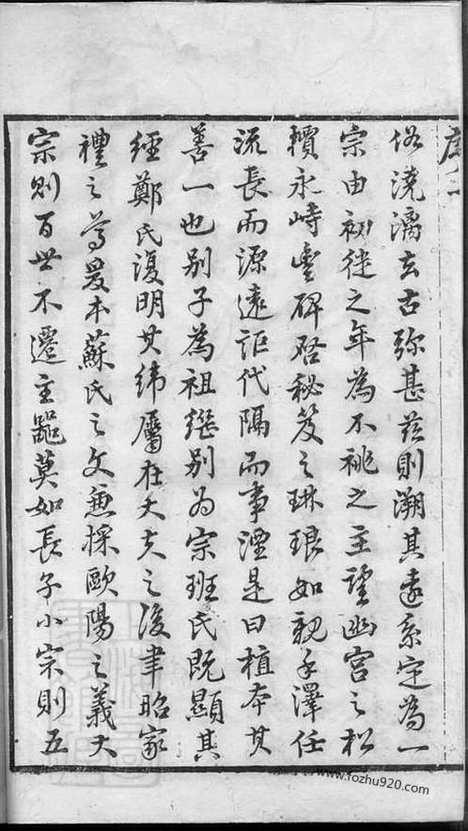 序二
俗澆漓去古彌甚茲則溯其遠系定為一
宗由初徙之年為不祧之主望幽宮之松
檟永峙豐碑啓秘笈之琳琅如親手澤任
流長而源遠詎代隔而事湮是曰植本其
善一也別子為祖繼別為宗班氏既顯其
經鄭氏復明其緯屬在大夫之後聿昭家
禮之篤爰本蘇氏之文兼採歐陽之義大
宗則百世不遷主鬯莫如長子小宗則五
www.fozhu920.com